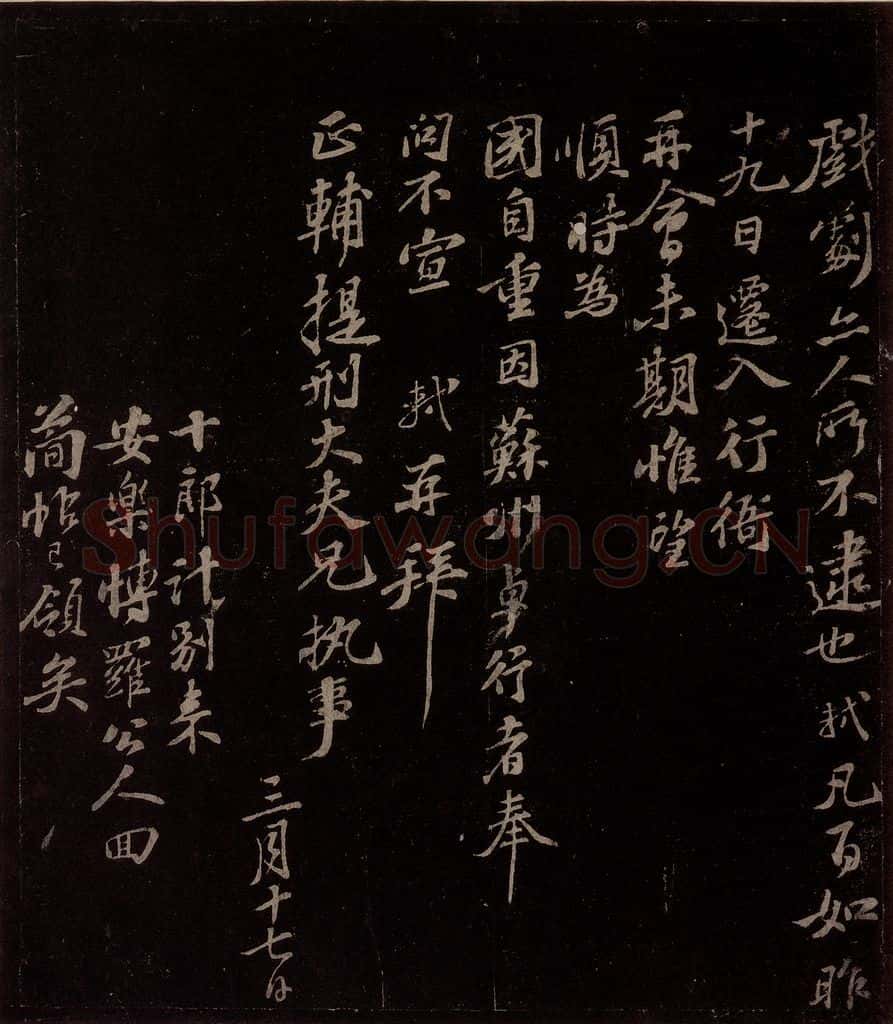 戲劇亦人所不逮也軾凡百如昨
十九日遷入行衙
再會未期惟望
順時為
國自重因蘇州卓行者奉
問不宣 軾再拜
正輔提刑大夫兄执事
三月十七日
十郎計別來
安樂博羅公人回
簡帖已領矣
Shufawang.CN